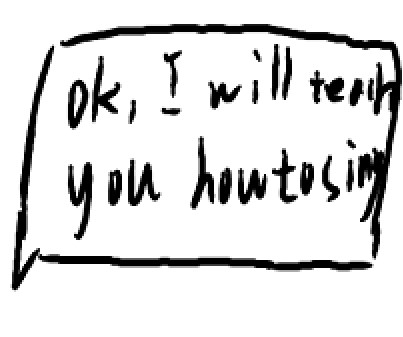 ok, I will teach
you howtosing